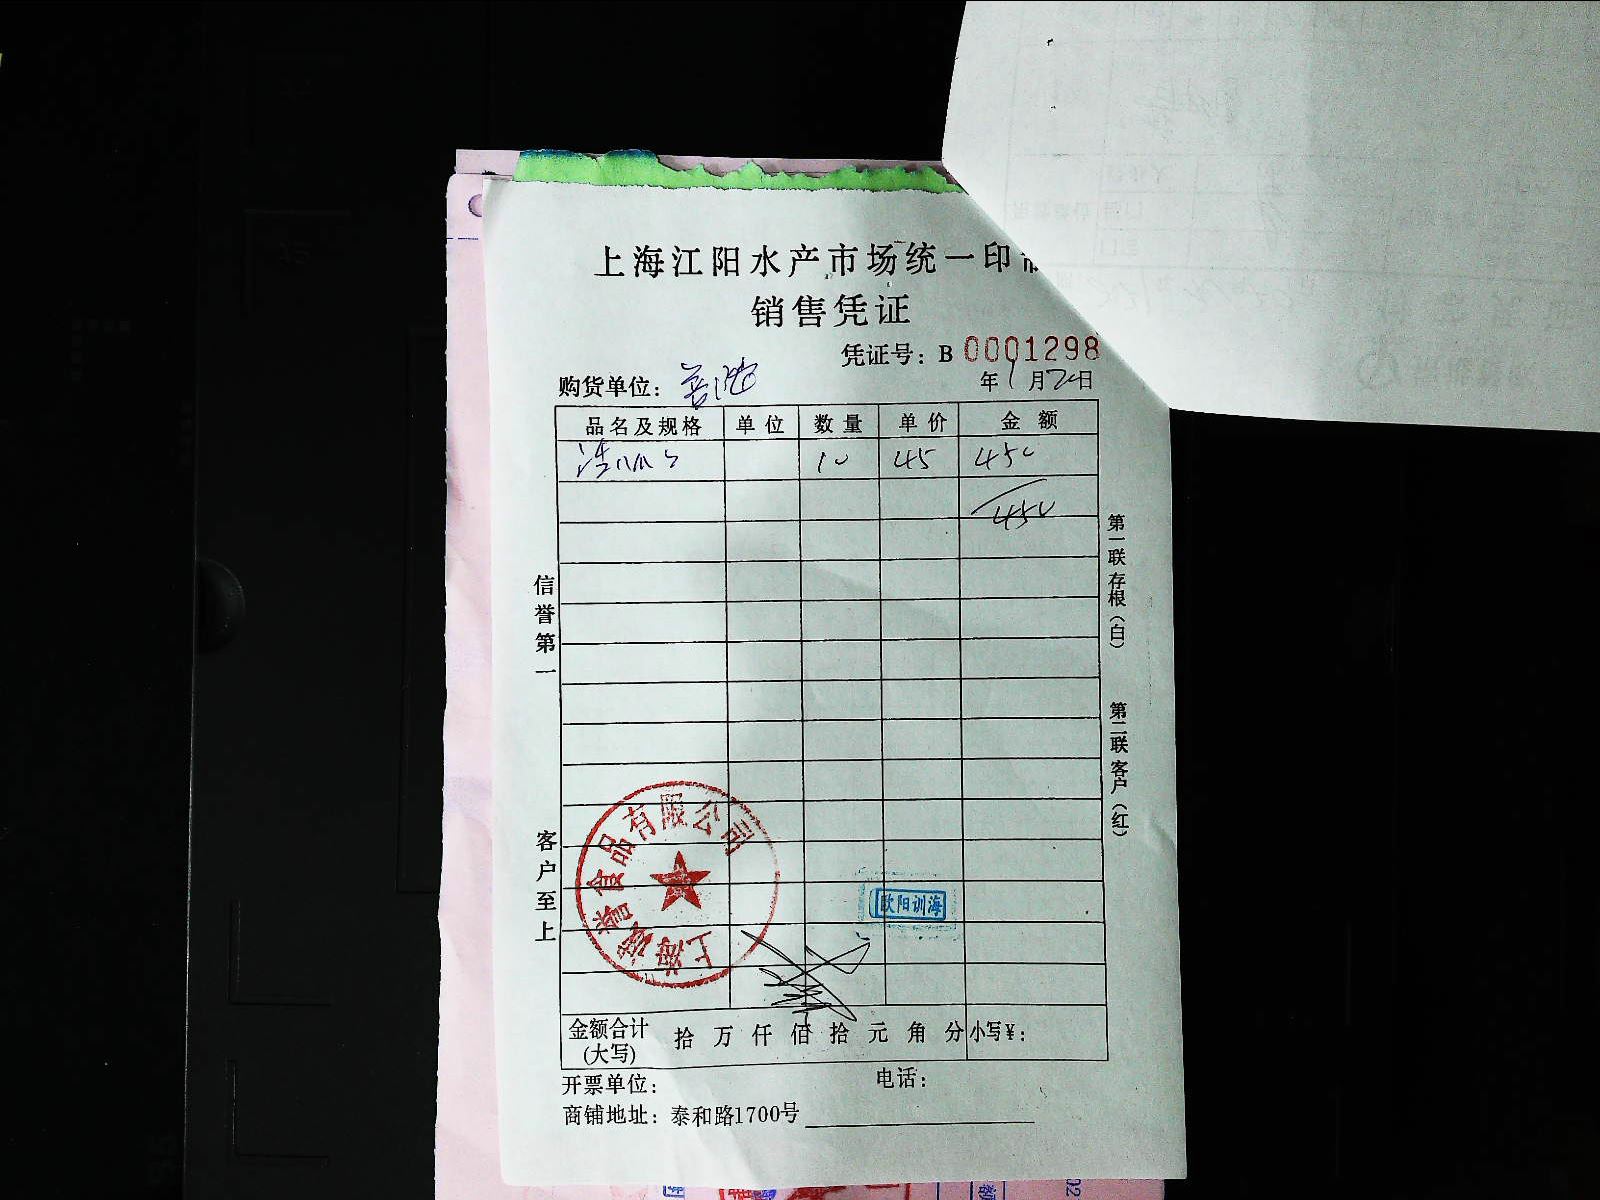 上海江阳水产市场统一印
销售凭证
凭证号：B 0001298
购货单位：
年1月20日
品名及规格 单位 数量 单价 金额
10 45 450
450
信誉第一
客户至上
第一联存根（白）
第二联客户（红）
上海诚誉食品有限公司
欧阳训海
金额合计(大写) 拾 万 仟 佰 拾 元 角 分 小写¥：
开票单位： 电话：
商铺地址：泰和路1700号